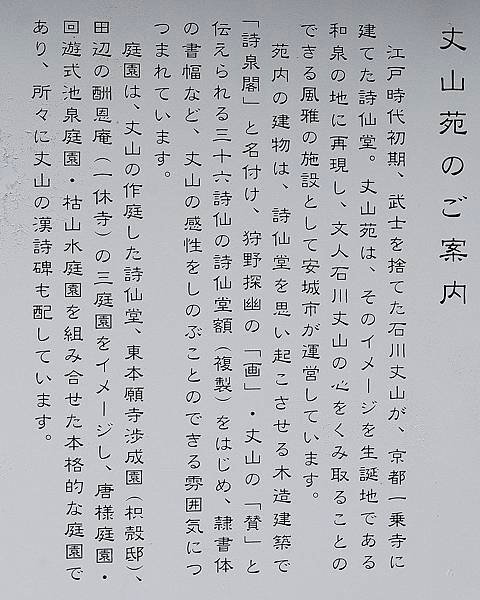 丈山苑のご案内
江戸時代初期、武士を捨てた石川丈山が、京都一乗寺に
建てた詩仙堂。丈山苑は、そのイメージを生誕地である
和泉の地に再現し、文人石川丈山の心をくみ取ることの
できる風雅の施設として安城市が運営しています。
苑内の建物は、詩仙堂を思い起こさせる木造建築で
「詩泉閣」と名付け、狩野探幽の「画」・丈山の「賛」と
伝えられる三十六詩仙の詩仙堂額（複製）をはじめ、隷書体
の書幅など、丈山の感性をしのぶことのできる雰囲気につ
つまれています。
庭園は、丈山の作庭した詩仙堂、東本願寺渉成園（枳殻邸）、
田辺の酬恩庵（一休寺）の三庭園をイメージし、唐様庭園・
回遊式池泉庭園・枯山水庭園を組み合せた本格的な庭園で
あり、所々に丈山の漢詩碑も配しています。